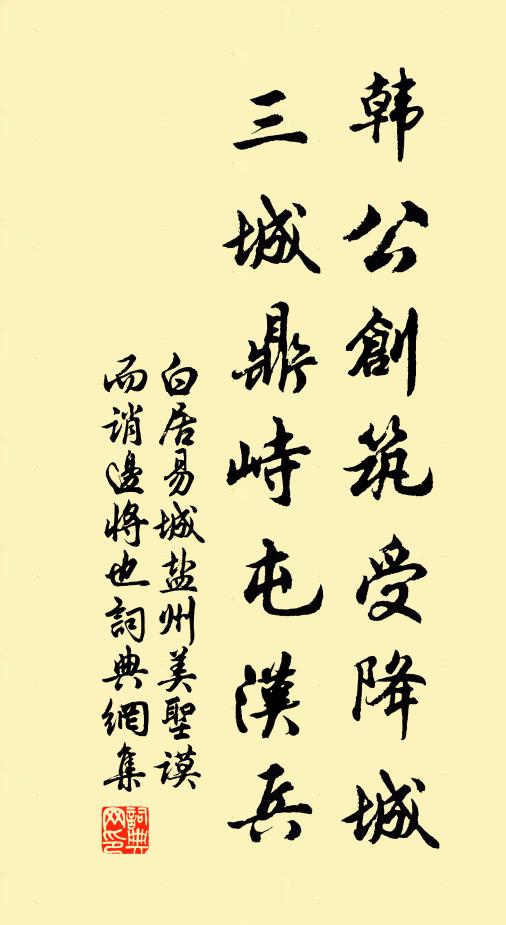 韩公創筑受降城
三城鼎峙屯漢兵
白居易城盐州美聖谟
而诮邊将也詞典網集
詞典
网印